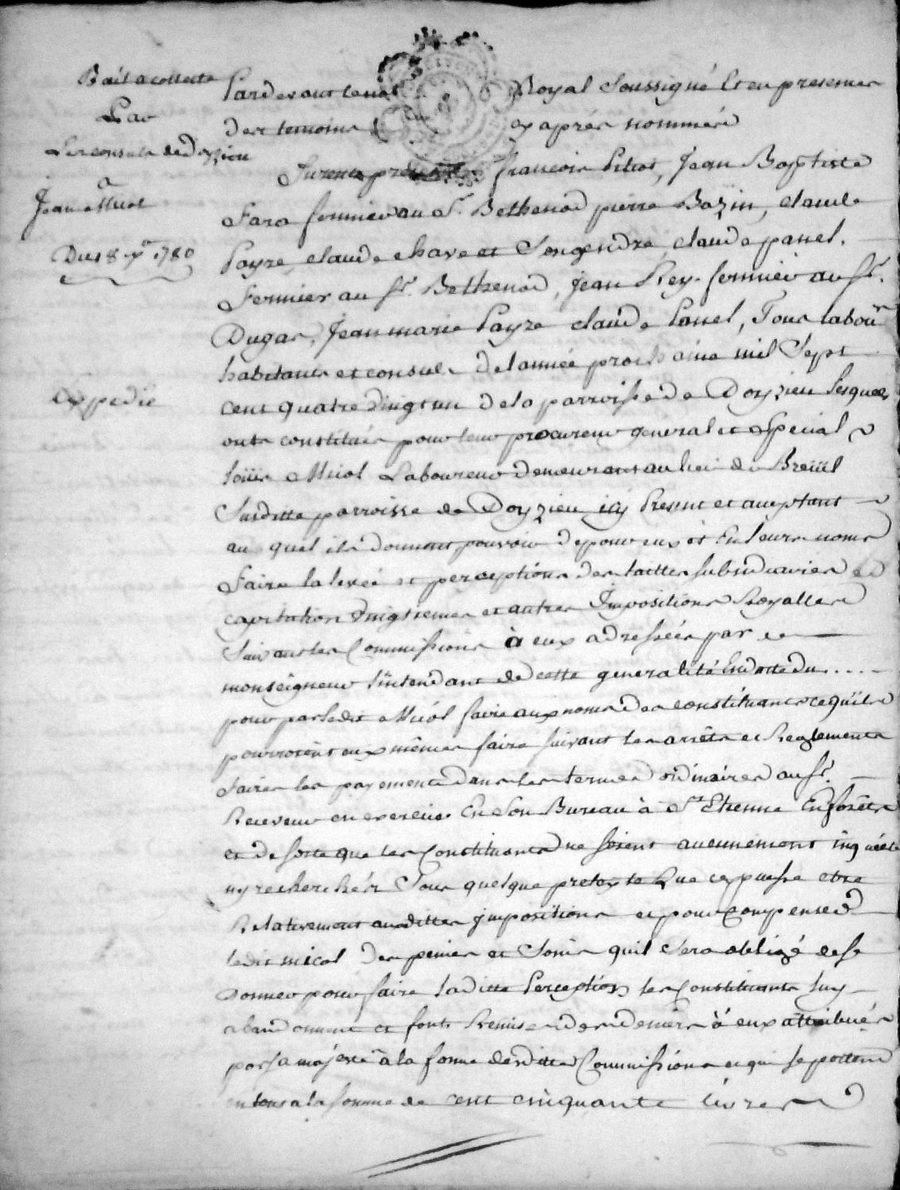 Bail a collecte
Par
Les consuls de doyzieu
a
Jean Micol
Du 18 7bre 1780
Expedié
Pardevant le no Royal Soussigné Et en presence
des temoins cy aprés nommés
Furent présents francois Jean Baptiste
Fara fermier au Sr. Bethenod pierre Bazin, claude
Payre, claude chave et Songendre claude panel,
Fermier au Sr. Bethenod, Jean Rey fermier au Sr.
Dugas, Jean marie Payre claude Panel, Tous labours
habitants et consuls de lannée prochaine mil Sept
cent quatre vingt un de la parroisse de Doyzieu lesquels
onts constitués pour leur procureur general et Special
Micol Laboureur demeurant au lieu du Breüil
Susditte parroisse de Doyzieu icy Present et aceptant
au quel ils donnent pouvoir de pour eux et En leurs noms
faire la levée et perceptions des tailles subsidiaires
capitation vingtiemes et autres Impositions Royalles
Suivant les Commissions à eux adressées par
monseigneur lintendant de cette generalité En datte du ....
pour par ledit Micol faire aux noms des constituants ce quils
pourroient eux mêmes faire suivant les arrêts et Reglements
faire les payements dans les termes ordinaires au Sr.
Receveur en exercice En son Bureau à St. Etienne En forêts
et de sorte que les Constituants ne soient aucunement inquiétés
ny recherchés Sous quelque pretexte que ce puisse etre
Relativement auxdittes impositions et pour Compenser
ledit micol des peines et Soins quil Sera obligé de se
donner pour faire laditte Perception les Constituants luy
abandonnent et fonts Remise des deniers à eux attribués
par sa majesté à la forme desdittes Commissions et qui se portent
en tous a la somme de cent cinquante livres